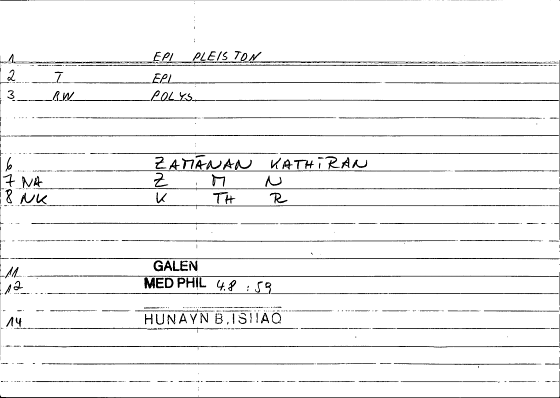 1 EPI PLEISTON
2 T EPI
3 RW POLYS
6 ZAMĀNAN KATHĪRAN
7 NA Z M N
8 NK K TH R
11 GALEN
12 MED PHIL 4.8 : 59
14 HUNAYN B. ISHAQ